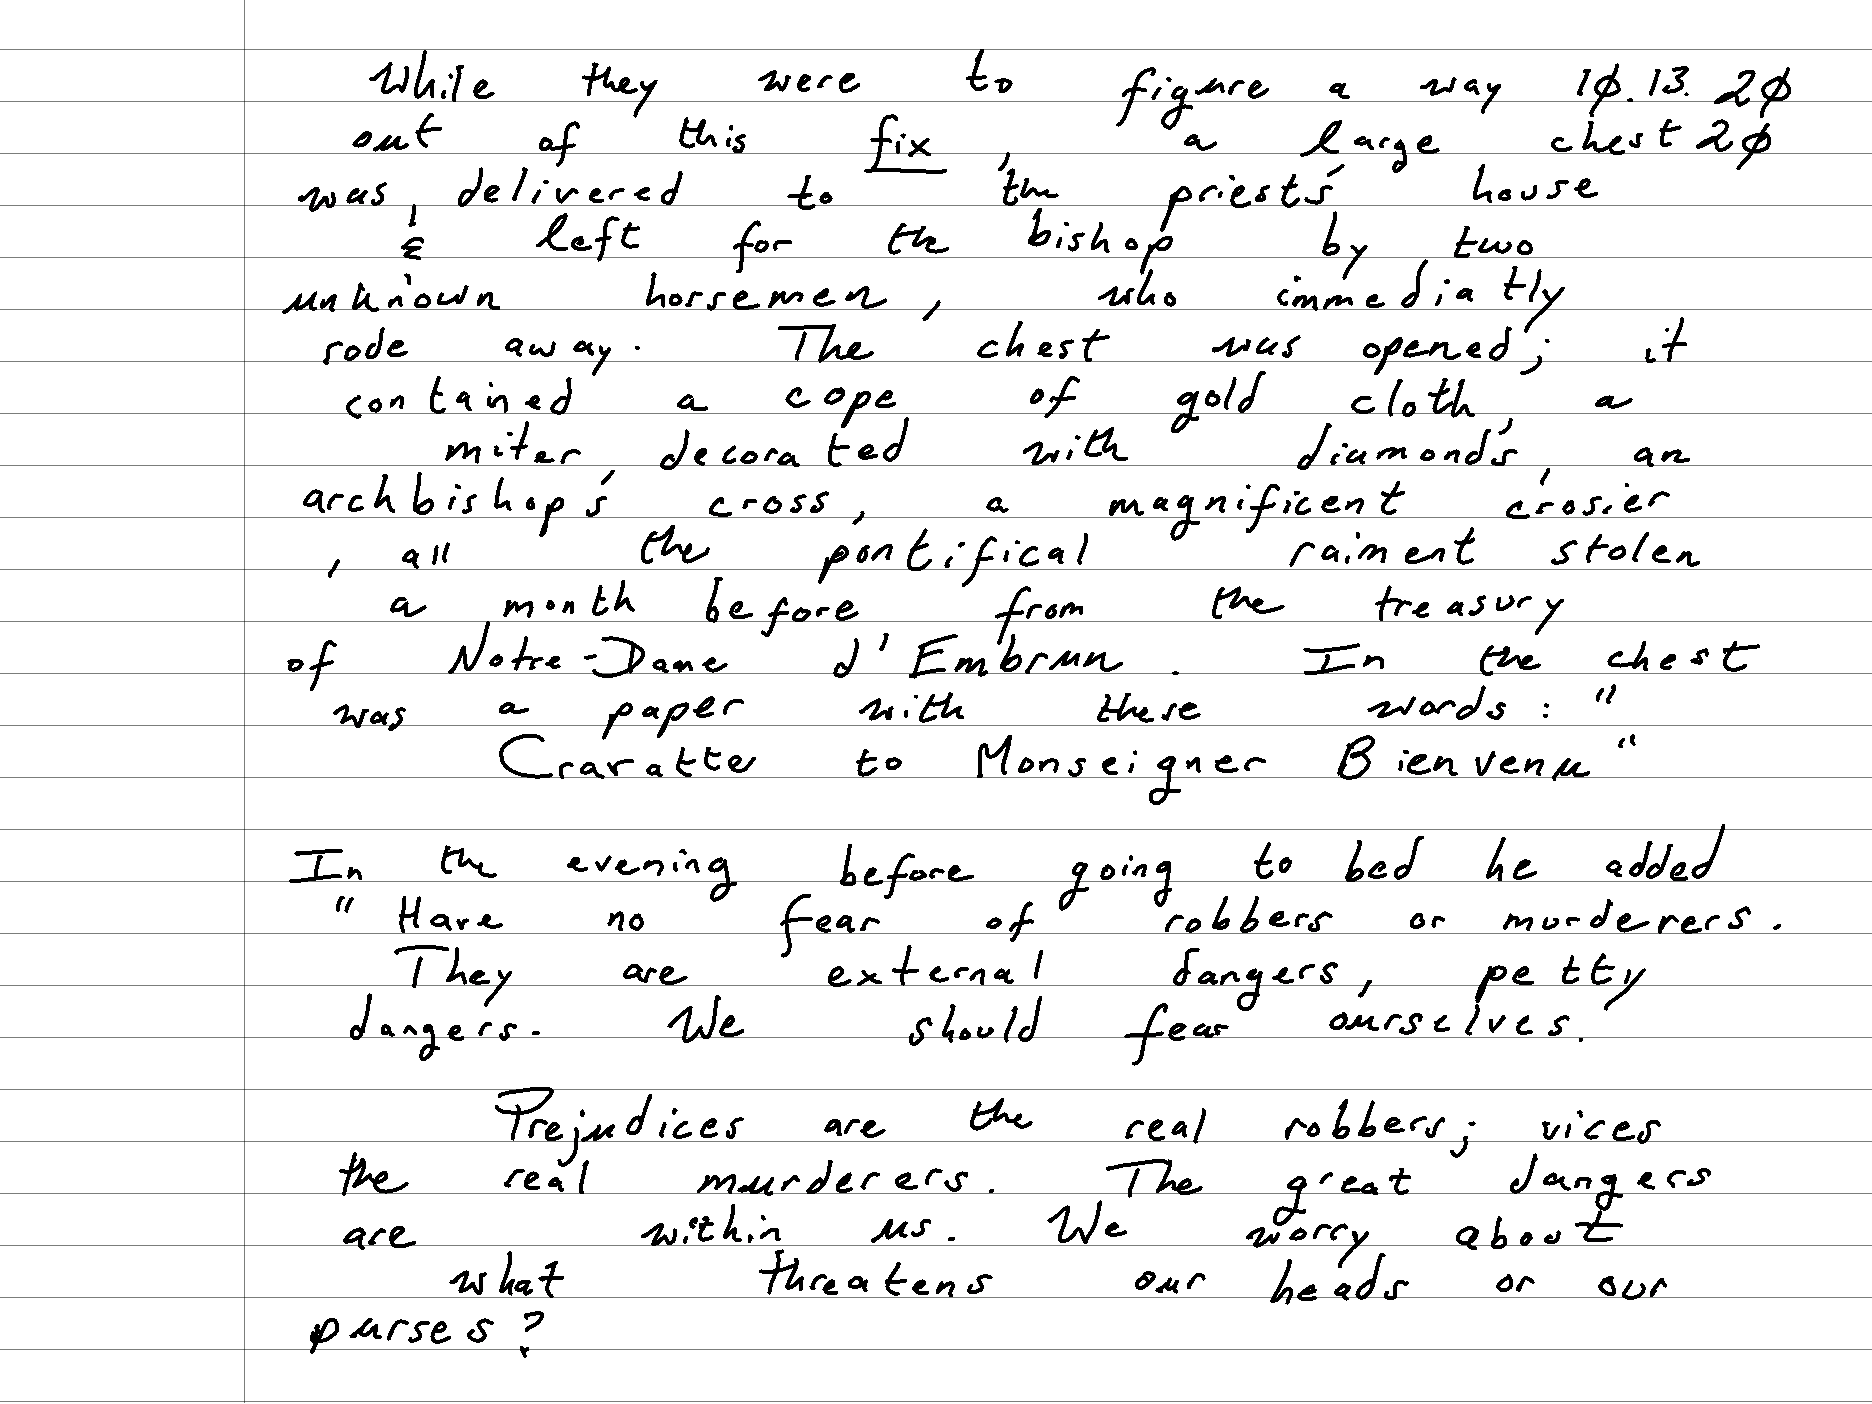 While they were to figure a way 10.13.20
out of this fix, a large chest 20
was, delivered to the priest's house
& left for the bishop by two
unknown horsemen, who immediatly
rode away. The chest was opened; it
contained a cope of gold cloth, a
miter, decorated with diamonds, an
archbishop's cross, a magnificent crosier
, all the pontifical raiment stolen
a month before from the treasury
of Notre-Dame d'Embrun. In the chest
was a paper with these words: "
Cravatte to Monseigner Bienvenu"
In the evening before going to bed he added
"Have no fear of robbers or murderers.
They are external dangers, petty
dangers. We should fear ourselves.
Prejudices are the real robbers; vices
the real murderers. The great dangers
are within us. We worry about
what threatens our heads or our
purses?